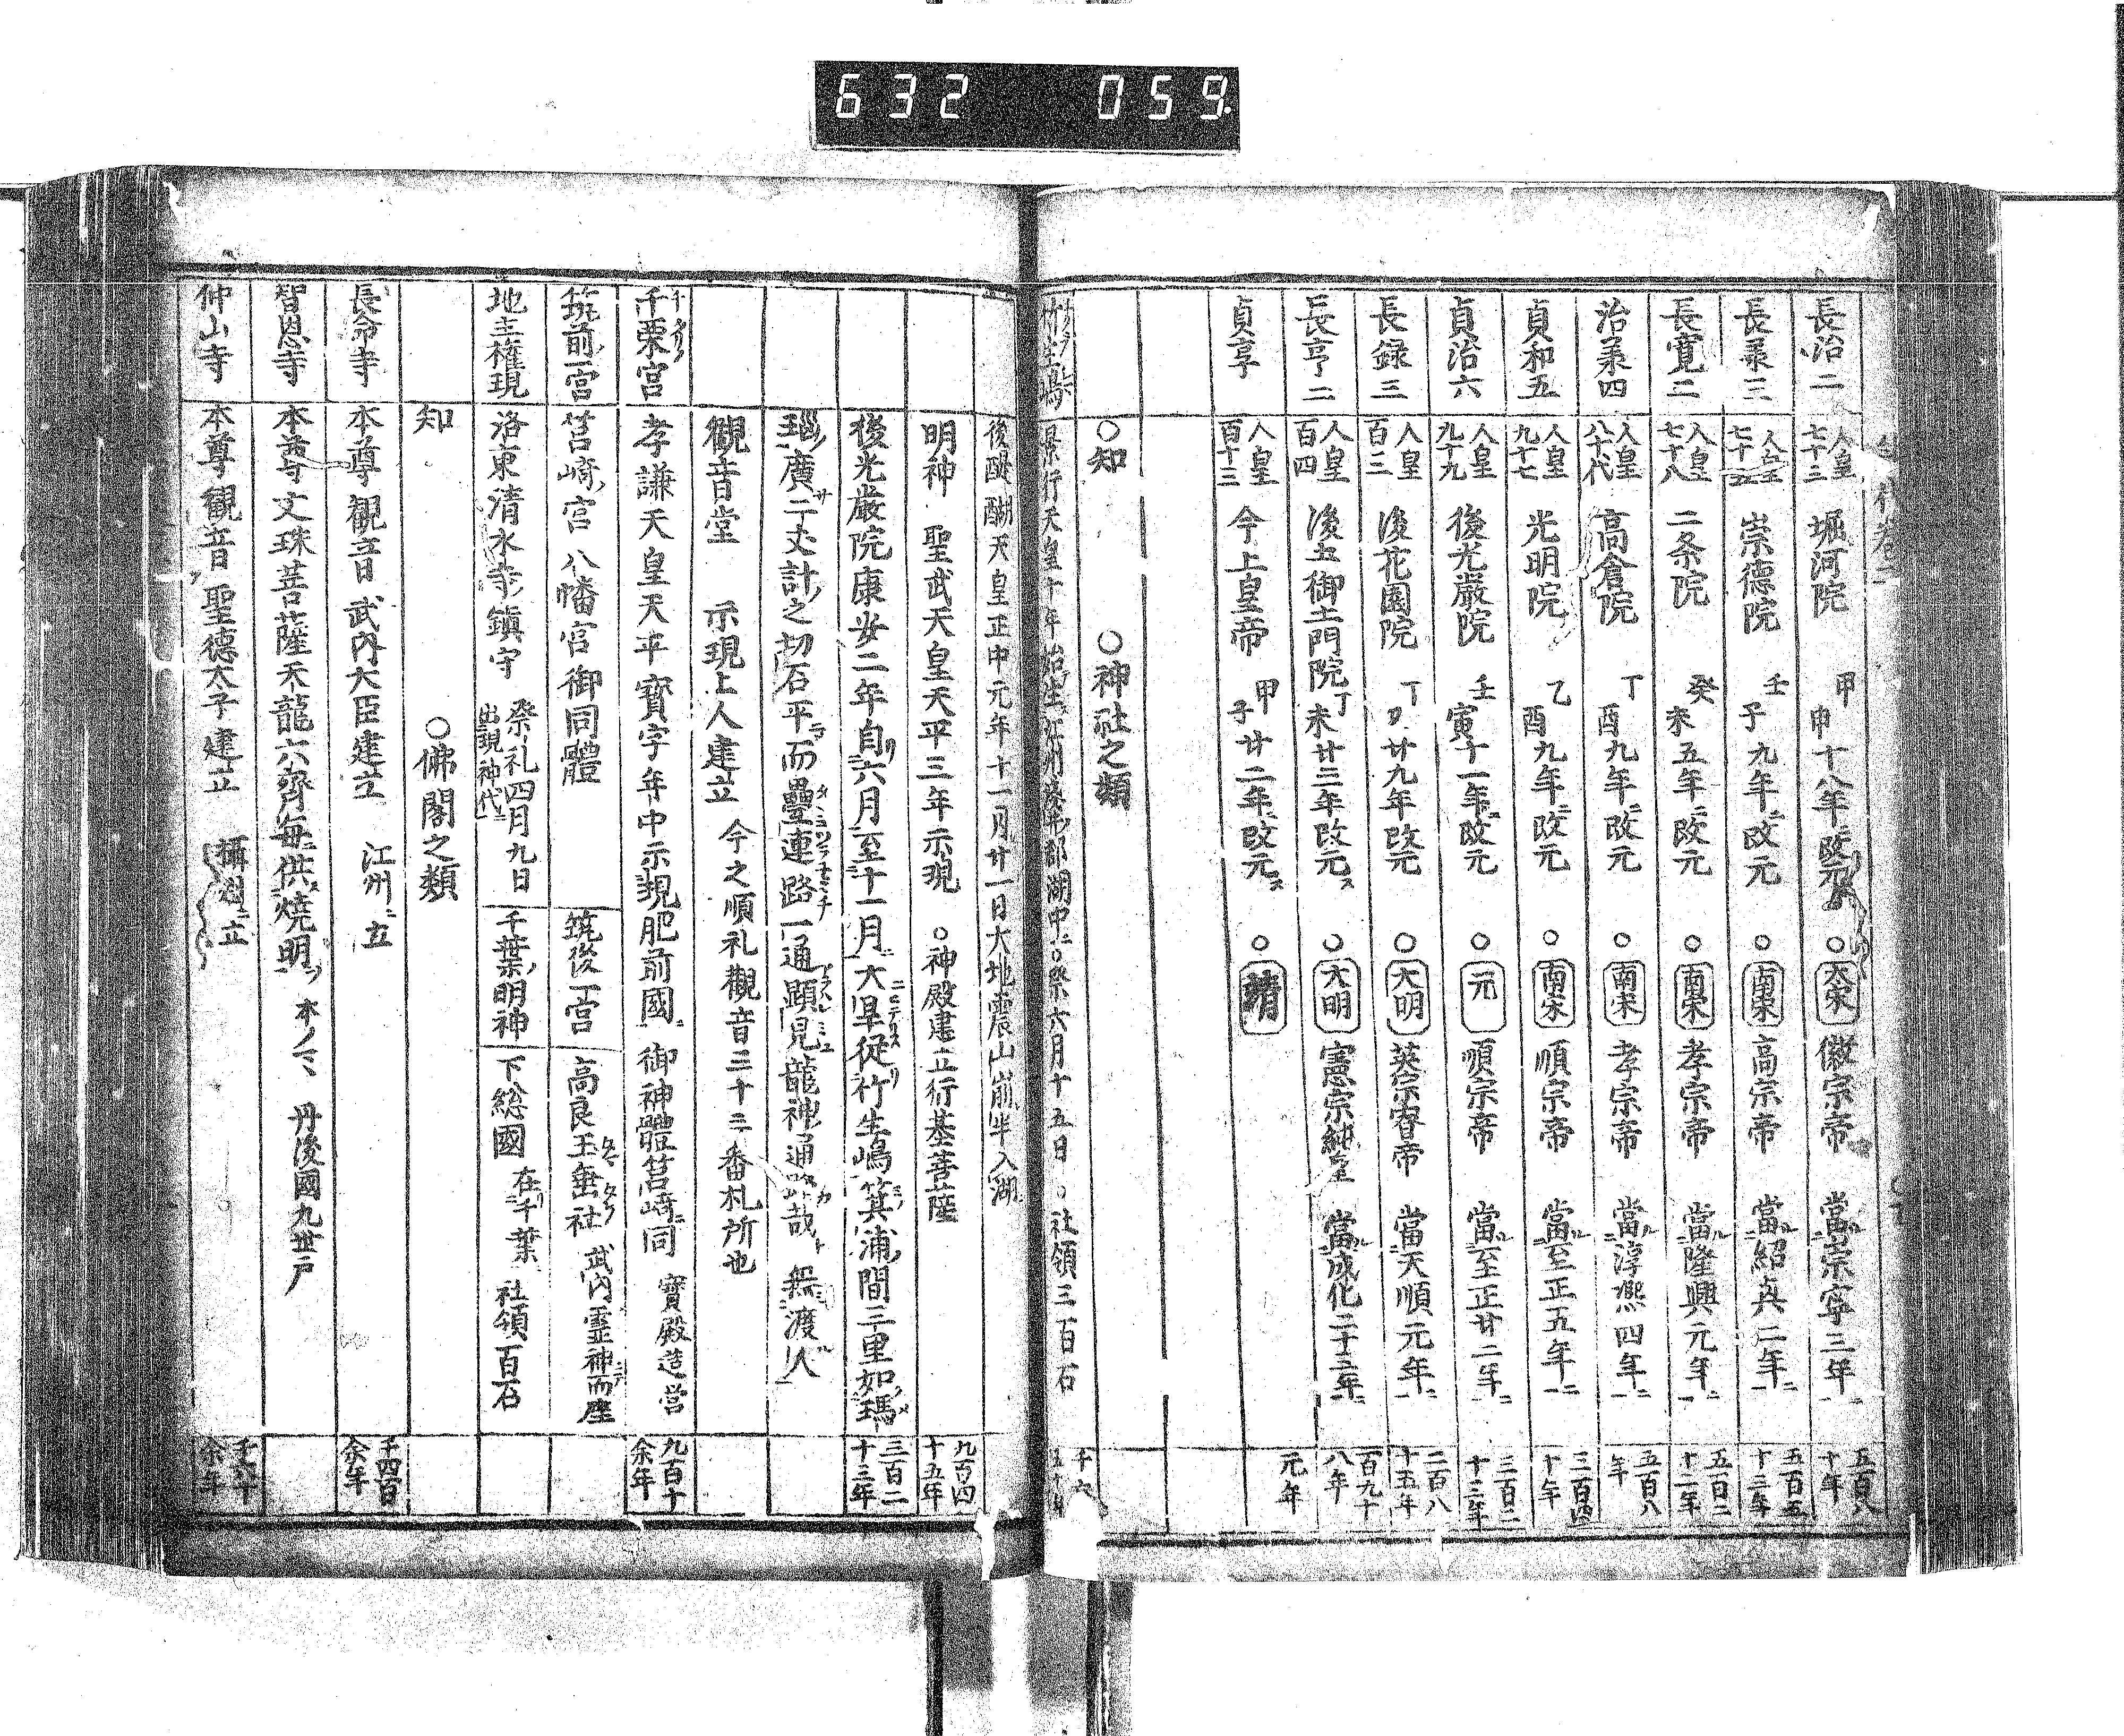 632 059
長治二 人皇七十三 堀河院 甲申十八年ニ改元 ○大宋 徽宗帝 當ル二崇寧三年一ニ 五百八十年
長承三 人皇七十五 崇德院 壬子九年ニ改元 ○南宋 高宗帝 當ル二紹興二年一ニ 五百五十三年
長寛二 人皇七十八 二条院 癸未五年ニ改元 ○南宋 孝宗帝 當ル二隆興元年一ニ 五百二十二年
治承四 人皇八十代 高倉院 丁酉九年ニ改元 ○南宋 孝宗帝 當ル二淳熈四年一ニ 五百八年
貞和五 人皇九十七 光明院 乙酉九年ニ改元 ○南宋 順宗帝 當ル二至正五年一ニ 三百四十年
貞治六 人皇九十九 後光嚴院 壬寅十一年ニ改元 ○元 順宗帝 當ル二至正廿二年一ニ 三百二十三年
長録三 人皇百三 後花園院 丁丑廿九年改元 ○大明 英宗睿帝 當天順元年一ニ 二百八十五年
長亨二 人皇百四 後土御土門院 丁未廿三年改元ス ○大明 憲宗純皇 當ル二成化二十三年一ニ 百九十八年
貞享 人皇百十三 今上皇帝 甲子廿二年ニ改元ス ○清 元年
○知 ○神社之類
竹生嶋 景行天皇十年始生江州浅井郡湖中ニ○祭六月十五日 ○社領三百石
後醍醐天皇正中元年十一月廿一日大地震山崩半入湖ニ
明神 聖武天皇天平三年示現 ○神殿建立行基菩薩 九百四十五年
後光嚴院康安二年自六月至十一月ニ大旱從竹生嶋箕浦間三里如瑪 三百二十三年
瑙廣サ二丈計之切石平ニ而疊連路一通顯見龍神通路哉ト無渡人
觀音堂 示現上人建立 今之順礼觀音三十三番札所也
千栗宮 孝謙天皇天平寳字年中示現肥前國ニ 御神體筥﨑ニ同 寳殿造営 九百十余年
筑前一宮 筥﨑宮 八幡宮御同體 筑後一宮 高良玉垂社 武内靈神而座
地主権現 洛東清水寺鎮守 祭礼四月九日 出現神代ニ 千葉明神 下総國 在千葉 社領百石
知 ○佛閣之類
長命寺 本尊觀音 武内大臣建立 江州ニ立 千四百余年
智恩寺 本尊文珠菩薩天龍六齊毎ニ供燒明ヲ 本ノマヽ 丹後國九世戸
仲山寺 本尊觀音 聖德太子建立 攝州ニ立 余年